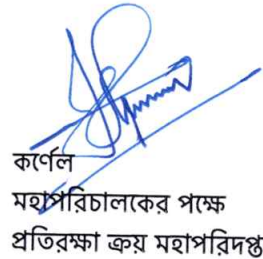 কর্ণেল
মহাপরিচালকের পক্ষে
প্রতিরক্ষা ক্রয় মহাপরিদপ্ত